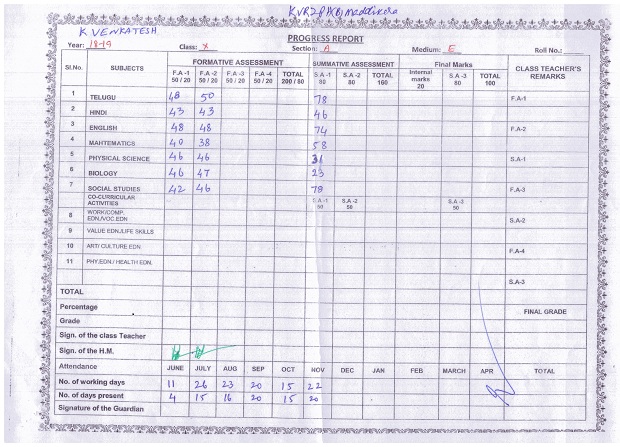 KVR ZPHS(B) Maddikera
K VENKATESH
PROGRESS REPORT
Year: 18-19 Class: X Section: A Medium: E Roll No.:
Sl.No. SUBJECTS FORMATIVE ASSESSMENT SUMMATIVE ASSESSMENT Final Marks CLASS TEACHER'S REMARKS
F.A -1 50 / 20 F.A -2 50 / 20 F.A -3 50 / 20 F.A -4 50 / 20 TOTAL 200 / 80 S.A -1 80 S.A -2 80 TOTAL 160 Internal marks 20 S.A -3 80 TOTAL 100
1 TELUGU 48 50 78 F.A-1
2 HINDI 43 43 46
3 ENGLISH 48 48 74 F.A-2
4 MAHTEMATICS 40 38 58
5 PHYSICAL SCIENCE 46 46 31 S.A-1
6 BIOLOGY 46 47 23
7 SOCIAL STUDIES 42 46 78 F.A-3
CO-CURRICULAR ACTIVITIES S.A.-1 50 S.A.-2 50 S.A.-3 50
8 WORK/COMP. EDN./VOC.EDN S.A-2
9 VALUE EDN./LIFE SKILLS
10 ART/ CULTURE EDN F.A-4
11 PHY.EDN / HEALTH EDN.
S.A-3
TOTAL
Percentage FINAL GRADE
Grade
Sign. of the class Teacher
Sign. of the H.M.
Attendance JUNE JULY AUG SEP OCT NOV DEC JAN FEB MARCH APR TOTAL
No. of working days 11 26 23 20 15 22
No. of days present 4 15 16 20 15 20
Signature of the Guardian